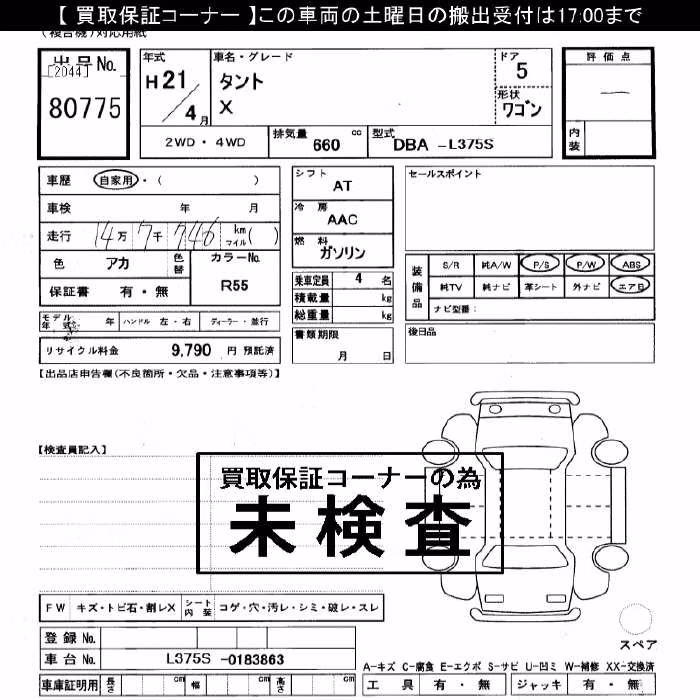 【 買取保証コーナー 】この車両の土曜日の搬出受付は17:00まで
(複合機)対応用紙
出品No.
[2044]
80775
年式
H21
4月
車名・グレード
タント
X
ドア
5
形状
ワゴン
評価点
—
内装
2WD・4WD
排気量 660 cc
型式 DBA -L375S
車歴 自家用・( )
車検 年 月
走行 14万7千746 km マイル( )
色 アカ 色替
カラーNo. R55
保証書 有・無
モデル年式 年 ハンドル 左・右 ディーラー・並行
リサイクル料金 9,790 円 預託済
シフト
AT
冷房
AAC
燃料
ガソリン
乗車定員 4 名
積載量 kg
総重量 kg
書類期限
月 日
セールスポイント
装備品
S/R 純A/W P/S P/W ABS
純TV 純ナビ 革シート 外ナビ エアB
ナビ型番:
後日品
【出品店申告欄(不良箇所・欠品・注意事項等)】
【検査員記入】
買取保証コーナーの為
未検査
FW キズ・トビ石・割レX シート内装 コゲ・穴・汚レ・シミ・破レ・スレ
登録No.
車台No. L375S -0183863
車庫証明用 長さ cm 幅 cm 高さ cm
スペア
A-キズ C-腐食 E-エクボ S-サビ U-凹ミ W-補修 XX-交換済
工具 有・無 ジャッキ 有・無